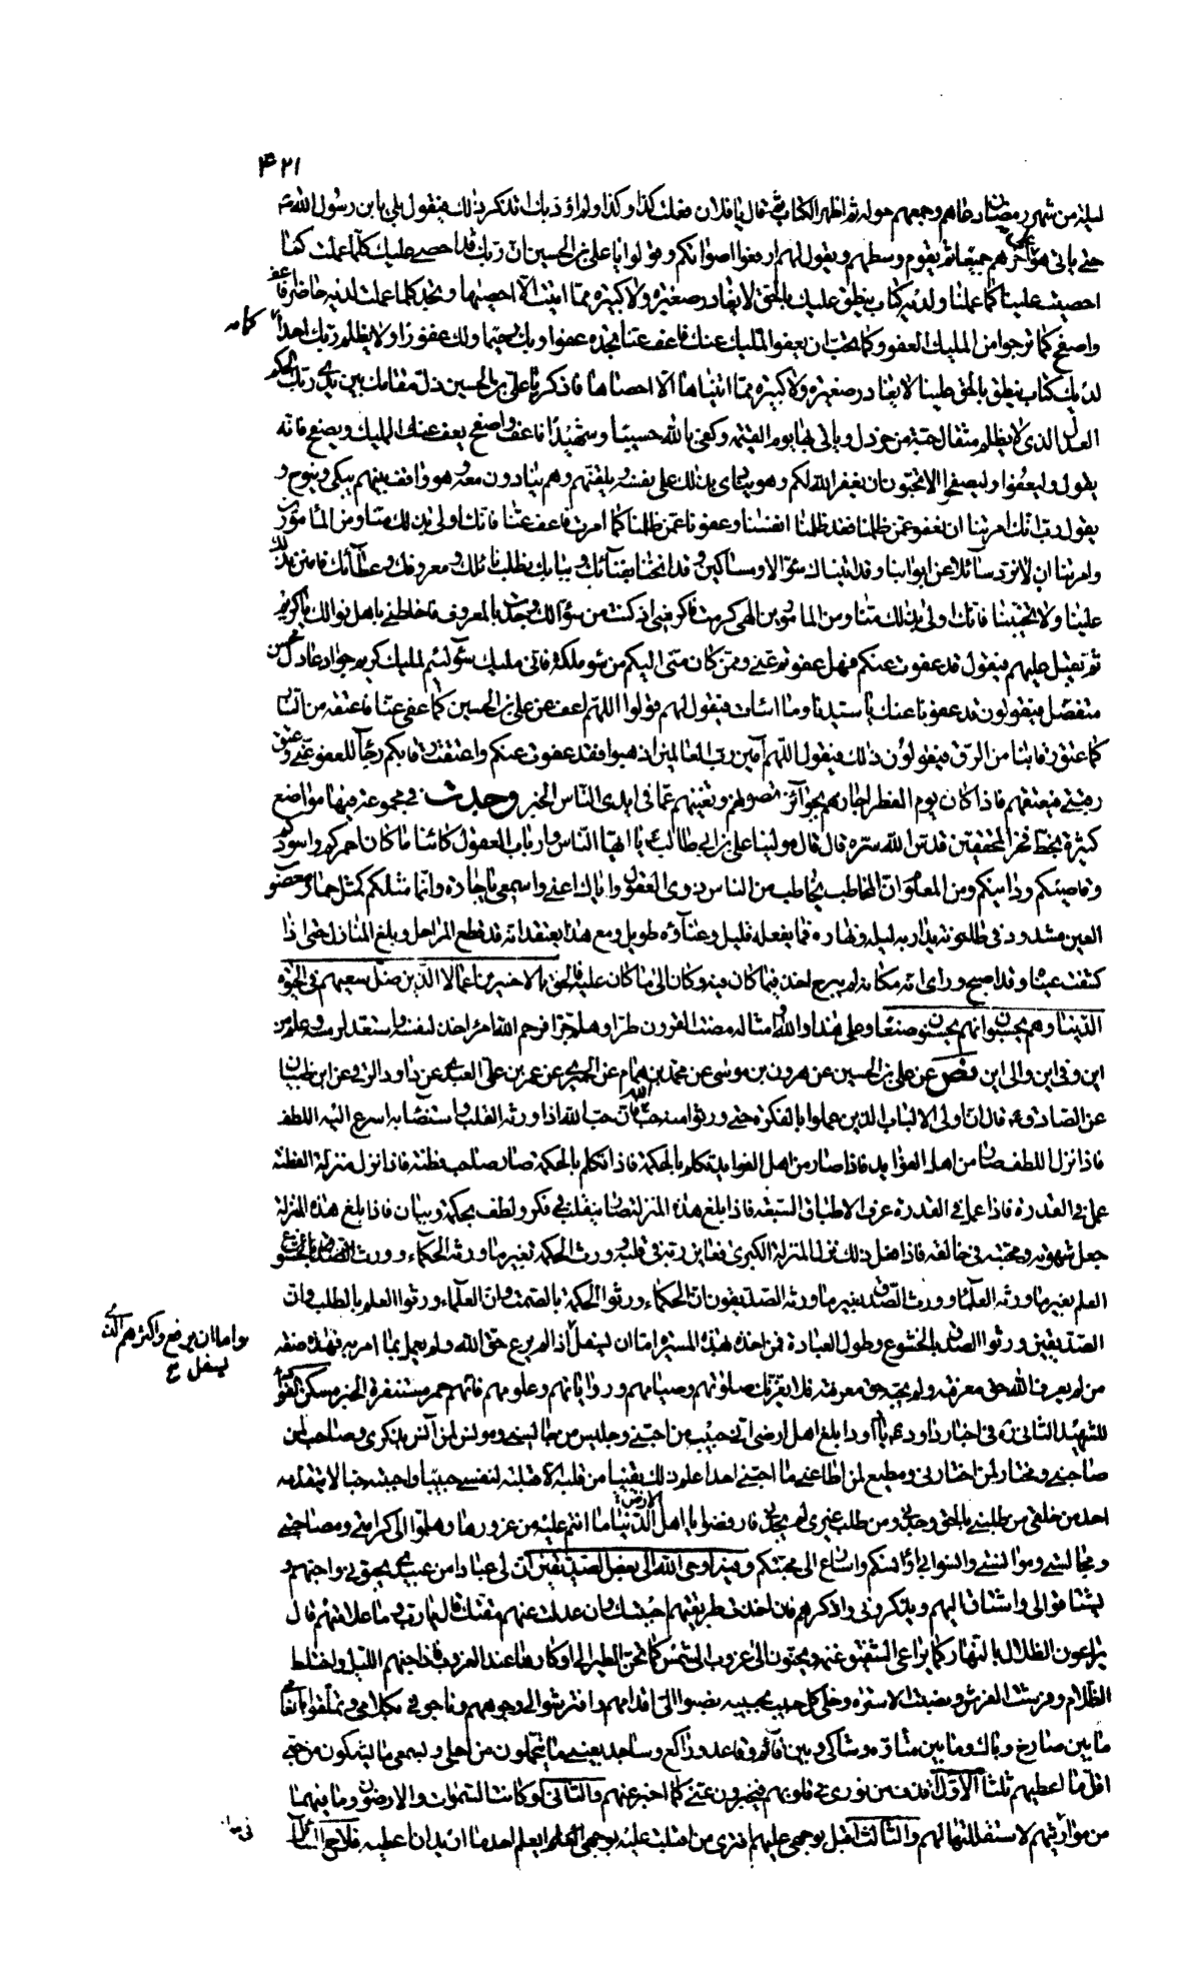 ٤٢١
ليلة من شهر رمضان دعاهم وجمعهم حوله ثم اظهر الكتاب ثم قال يا فلان فعلت كذا وكذا ولم اؤدبك اتذكر ذلك فيقول بلى يا بن رسول الله
حتى ياتي على آخرهم جميعا ثم يقوم وسطهم ويقول لهم ارفعوا اصواتكم وقولوا يا علي بن الحسين ان ربك قد احصى عليك كلما عملت كما
احصيت علينا كلما عملنا ولديه كتاب ينطق عليك بالحق لا يغادر صغيرة ولا كبيرة مما اتيت الا احصيها وتجد كلما عملت لديه حاضرا فاعف
واصفح كما ترجوا من المليك العفو وكما تحب ان يعفو المليك عنك فاعف عنا تجده عفوا وبك رحيما ولك غفورا ولا يظلم ربك احدا كما
لديك كتاب ينطق بالحق علينا لا يغادر صغيرة ولا كبيرة مما اتيناها الا احصاها فاذكر يا علي بن الحسين ذل مقامك بين يدي ربك الحكم
العدل الذي لا يظلم مثقال حبة من خردل وياتي بها يوم القيمة وكفى بالله حسيبا وشهيدا فاعف واصفح يعف عنك المليك ويصفح فانه
يقول وليعفوا وليصفحوا الا تحبون ان يغفر الله لكم وهو ينادي بذلك على نفسه ويلقنهم وهم ينادون معه وهو واقف بينهم يبكي وينوح و
يقول رب انك امرتنا ان نعفو عمن ظلمنا فقد ظلمنا انفسنا وعفونا عمن ظلمنا كما امرت فاعف عنا فانك اولى بذلك منا ومن المأمورين
وامرتنا ان لا نرد سآئلا عن ابوابنا وقد اتيناك سؤالا ومساكين وقد انخنا بفنآئك وببابك نطلب نائلك ومعروفك وعطآئك فامنن بذلك
علينا ولا تخيبنا فانك اولى بذلك منا ومن المامورين الهي كرمت فاكرمني اذ كنت من سؤالك وجدت بالمعروف فاخلطني باهل نوالك يا كريم
ثم يقبل عليهم فيقول قد عفوت عنكم فهل عفوتم عني وعما كان مني اليكم من سوء ملكة فاني مليك سوء لئيم لمليك كريم جواد عادل محسن
متفضل فيقولون قد عفونا عنك يا سيدنا وما اسأت فيقول لهم قولوا اللهم اعف عن علي بن الحسين كما عفى عنا فاعتقه من النار
كما عتق رقابنا من الرق فيقولون ذلك فيقول اللهم آمين رب العالمين اذهبوا فقد عفوت عنكم واعتقت رقابكم رجآءا للعفو عني وعتق
رقبتي فيعتقهم فاذا كان يوم الفطر اجازهم بجوآئز تصونهم وتغنيهم عما في ايدي الناس الخبر وجدت في مجموعة فيها مواضع
كثيرة بخط فخر المحققين قدس الله سره قال قال مولينا علي بن ابي طالب يا ايها الناس وارباب العقول كائنا ما كان احمركم واسودكم
وقاصيكم ودانيكم ومن المعلوم ان المخاطب يخاطب من الناس ذوى العقول واياك اعني واسمعي يا جارة وانما مثلكم كمثل حمار معصوب
العين مشدود في طاحونة يدار به ليله ونهاره فما يفعله قليل وعنآؤه طويل ومع هذا يعتقد انه قد قطع المراحل وبلغ المنازل حتى اذا
كشفت عينا وقد اصبح وراى انه مكانه لم يبرح اخذ فيما كان فيه وكان الى ما كان عليه فالحق بالاخسرين اعمالا الذين ضل سعيهم في الحيوة
الدنيا وهم يحسبون انهم يحسنون صنعا وعلى هذا والله وامثاله مضت القرون طرا وهلم جرا فرحم الله امرء اخذ لنفسه واستعد لرمسه وعلم من
اين وفي اين والى اين نص عن علي بن الحسين عن هرون بن موسى عن محمد بن همام عن الحميري عن عمر بن علي العبدي عن داود الرقي عن ابن ظبيان
عن الصادق ع قال ان اولى الالباب الذين عملوا بالفكرة حتى ورثوا منه حب الله فان حب الله اذا ورثه القلب واستضآء به اسرع اليه اللطف
فاذا نزل اللطف صار من اهل الفوايد فاذا صار من اهل الفوايد تكلم بالحكمة فاذا تكلم بالحكمة صار صاحب فطنة فاذا نزل منزلة الفطنة
عمل في القدرة فاذا عمل في القدرة عرف الاطباق السبعة فاذا بلغ هذه المنزلة صار يتقلب في فكر ولطف بحكمة وبيان فاذا بلغ هذه المنزلة
جعل شهوته ومحبته في خالقه فاذا فعل ذلك نزل المنزلة الكبرى فعاين ربه في قلبه وورث الحكمة بغير ما ورثه الحكمآء وورث
العلم بغير ما ورثه العلمآء وورث الصدق بغير ما ورثه الصديقون ان الحكمآء ورثوا الحكمة بالصمت وان العلمآء ورثوا العلم بالطلب وان
الصديقين ورثوا الصدق بالخشوع وطول العبادة فمن اخذه بهذه المسيرة اما ان يسفل اذا لم يرع حق الله ولم يعمل بما امر به فهذه صفة
واما ان يرفع واكثرهم الذي
يسفل ع
من لم يعرف الله حق معرفته ولم يحبه حق محبته فلا يغرنك صلوتهم وصيامهم ورواياتهم وعلومهم فانهم حمر مستنفرة الخبر مسكن الفؤاد
للشهيد الثاني ره في اخبار داود ع يا داود ابلغ اهل ارضي اني حبيب من احبني وجليس من جالسني ومونس لمن آنس بذكري وصاحب لمن
صاحبني ومختار لمن اختارني ومطيع لمن اطاعني ما احبني احد اعلم ذلك يقينا من قلبه الا قبلته لنفسي واحببته حبا لا يتقدمه
احد من خلقي من طلبني بالحق وجدني ومن طلب غيري لم يجدني فارفضوا يا اهل الارض ما انتم عليه من غرورها وهلموا الى كرامتي ومصاحبتي
ومجالستي وموانستي وآنسوا بي اؤانسكم واسارع الى محبتكم وفيه اوحى الله الى بعض الصديقين ان لي عبادا من عبيدي يحبوني واحبهم و
يشتاقون الي واشتاق اليهم ويذكروني واذكرهم فان اخذت طريقتهم احببتك وان عدلت عنهم مقتك قال يا رب وما علامتهم قال
يراعون الظلال بالنهار كما يراعي الشفيق غنمه ويحنون الى غروب الشمس كما تحن الطير الى اوكارها عند الغروب فاذا جنهم الليل واختلط
الظلام وفرشت الفرش ونصبت الاسرة وخلى كل حبيب بحبيبه نصبوا الي اقدامهم وافترشوا لي وجوههم وناجوني بكلامي وتملقوا بانعامي
ما بين صارخ وباك وما بين متأوه وشاكي وبين قآئم وقاعد وراكع وساجد بعيني ما يتحملون من اجلي وبسمعي ما يشكون من حبي
اقل ما اعطيهم ثلثا الاول اقذف من نوري في قلوبهم فيخبرون عني كما اخبر عنهم والثاني لو كانت السموات والارضون وما فيهما
من موازينهم لاستقللتها لهم والثالث اقبل بوجهي عليهم افترى من اقبلت عليه بوجهي ايعلم احد ما اريد ان اعطيه فلاح السائل